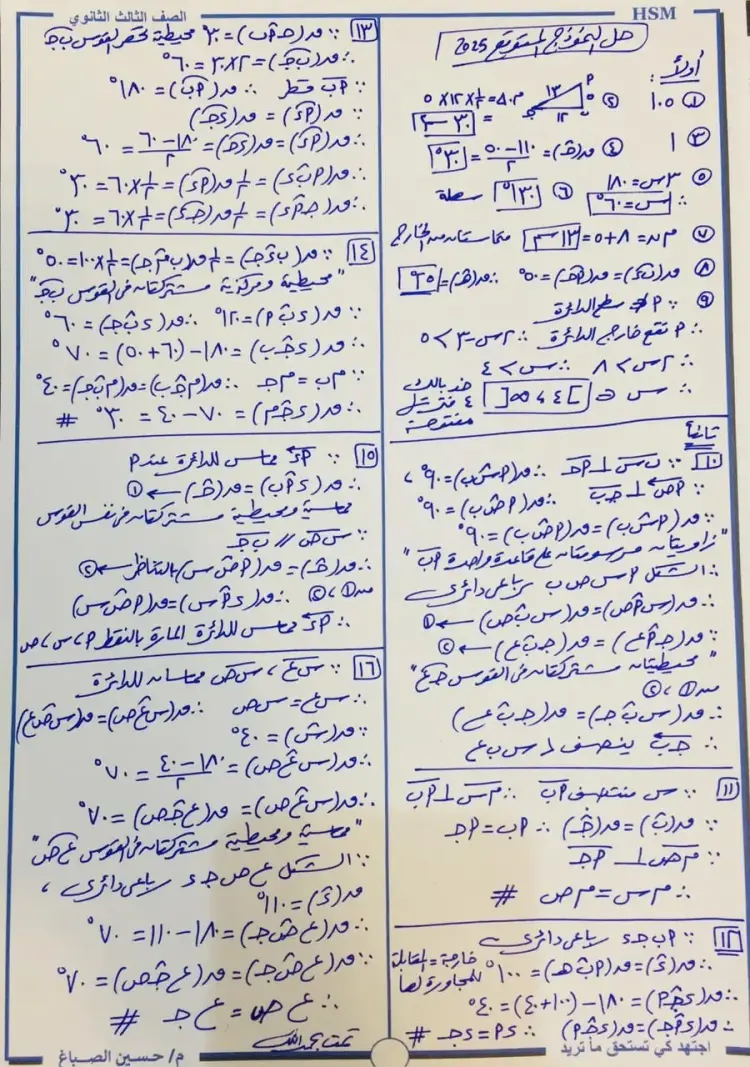 HSM
الصف الثالث الثانوي
حل النموذج التدريبي 2025
أولاً :
① ١٠٥
② م. Δ = ½ × ١٢ × ٥
= ٣٠ سم٢
③ ١
④ ∴ ق(جـ) = (١١٠ - ٥٠)/٢ = ٣٠°
⑤ ٣س = ١٨٠
∴ س = ٦٠°
⑥ ١٣٠°
⑦ م ن = ٨ + ٥ = ١٣ سم متماستان من الخارج
⑨ ∵ م ∌ سطح الدائرة
∴ م تقع خارج الدائرة ∴ ٢س - ٣ > ٥
∴ ٢س > ٨ ∴ س > ٤
∴ س ∈ ]٤ ، ∞[
خد بالك
مفتوحة
ثانياً
⑩
∵ ق(أ س ب) = ق(أ ص ب) = ٩٠°
"زاويتان مرسومتان على قاعدة واحدة أب"
∴ الشكل أ س ص ب رباعي دائري
∴ ق(س أ ص) = ق(س ب ص) ← ①
∵ ق(جـ أ ع) = ق(جـ ب ع) ← ②
"محيطيتان مشتركتان في القوس جـ ع"
من ① ، ②
∴ ق(س ب جـ) = ق(جـ ب ع)
∴ جـ ب ينصف ∠ س ب ع
⑪ ∵ س منتصف أب ∴ م س ⊥ أب
∵ ق(ب) = ق(جـ) ∴ أب = أجـ
∵ م ص ⊥ أجـ
∴ م س = م ص #
⑫ ∵ أ ب جـ د رباعي دائري
∴ ق(د) = ق(أ ب هـ) = ١٠٠° خارجة = المقابلة
للمجاورة لها
∴ ق(د جـ أ) = ١٨٠ - (١٠٠ + ٤٠) = ٤٠°
∴ ق(د أ جـ) = ق(د جـ أ) ∴ د أ = د جـ #
اجتهد كي تستحق ما تريد
⑬ ∵ ق(جـ أ ب) = ٣٠° محيطية تحصر القوس ب جـ
∴ ق(ب جـ) = ٢ × ٣٠ = ٦٠°
∵ أب قطر ∴ ق(أب) = ١٨٠°
∵ ق(أد) = ق(د جـ)
∴ ق(أد) = ق(د جـ) = (١٨٠ - ٦٠)/٢ = ٦٠°
∴ ق(أ ب د) = ½ ق(أد) = ½ × ٦٠ = ٣٠°
∴ ق(جـ أ د) = ½ ق(جـ د) = ½ × ٦٠ = ٣٠°
⑭ ∵ ق(ب د جـ) = ½ ق(ب م جـ) = ½ × ١٠٠ = ٥٠°
"محيطية ومركزية مشتركتان في القوس ب جـ"
∵ ق(د ب أ) = ١٢٠° ∴ ق(د ب جـ) = ٦٠°
∴ ق(د جـ ب) = ١٨٠ - (٦٠ + ٥٠) = ٧٠°
∵ م ب = م جـ ∴ ق(م جـ ب) = ق(م ب جـ) = ٤٠°
∴ ق(د جـ م) = ٧٠ - ٤٠ = ٣٠° #
⑮ ∵ أد مماس للدائرة عند أ
∴ ق(د أ ب) = ق(جـ) ← ①
مماسية ومحيطية مشتركتان في نفس القوس
∵ س ص // ب جـ
∴ ق(جـ) = ق(أ ص س) بالتناظر ← ②
من ① ، ② ∴ ق(د أ س) = ق(أ ص س)
∴ أد مماس للدائرة المارة بالنقط أ ، س ، ص
⑯ ∵ س ع ، س ص مماسان للدائرة
∴ س ع = س ص ∴ ق(س ع ص) = ق(س ص ع)
∵ ق(س) = ٤٠°
∴ ق(س ع ص) = (١٨٠ - ٤٠)/٢ = ٧٠°
∴ ق(س ع ص) = ق(ع جـ ص) = ٧٠°
"مماسية ومحيطية مشتركتان في القوس ع ص"
∵ الشكل ع ص جـ د رباعي دائري ،
ق(د) = ١١٠°
∴ ق(ع ص جـ) = ١٨٠ - ١١٠ = ٧٠°
∵ ق(ع ص جـ) = ق(ع جـ ص) = ٧٠°
∴ ع ص = ع جـ #
تمت بحمد الله
م/ حسين الصباغ